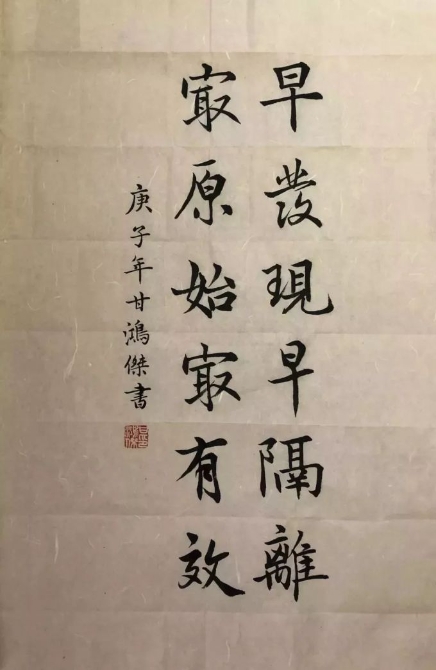 早發現早隔離
寂原始寂有效
庚子年甘鴻傑書